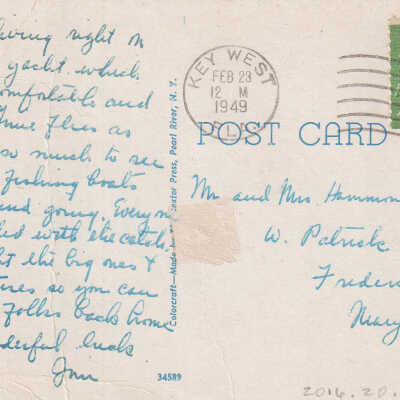 living right on
yacht which
comfortable and
time flies as
so much to see
Fishing boats
and going. Everyone
with the catch.
the big ones &
so you can
Folks back home
wonderful luck
Colorcraft—Made Dexter Press, Pearl River, N. Y.
34589
KEY WEST
FEB 23
12 M
1949
FLA.
POST CARD
Mr. and Mrs Hammon
W. Patrick
Freder
Mary
2016.20.